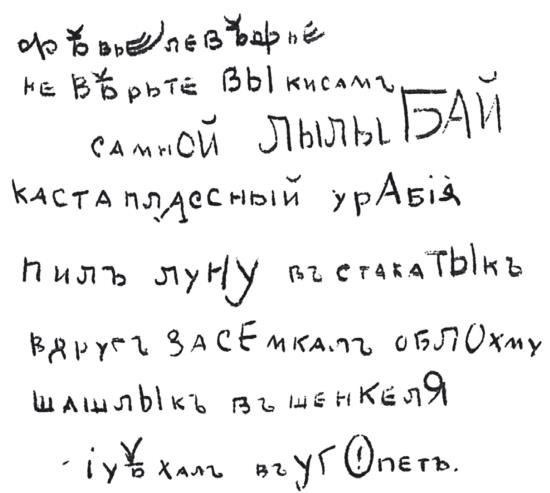 не вѣрьте ВЫ кисамъ
самнОЙ ЛЫЛЫ БАЙ
каста плассный урАбія
пилъ луНУ въ стакаТЫкъ
вдругъ ЗАСЕмкалъ оБЛОхму
шашлЫкъ въ шенКеЛЯ
іуѣхалъ въ УГОпетъ.